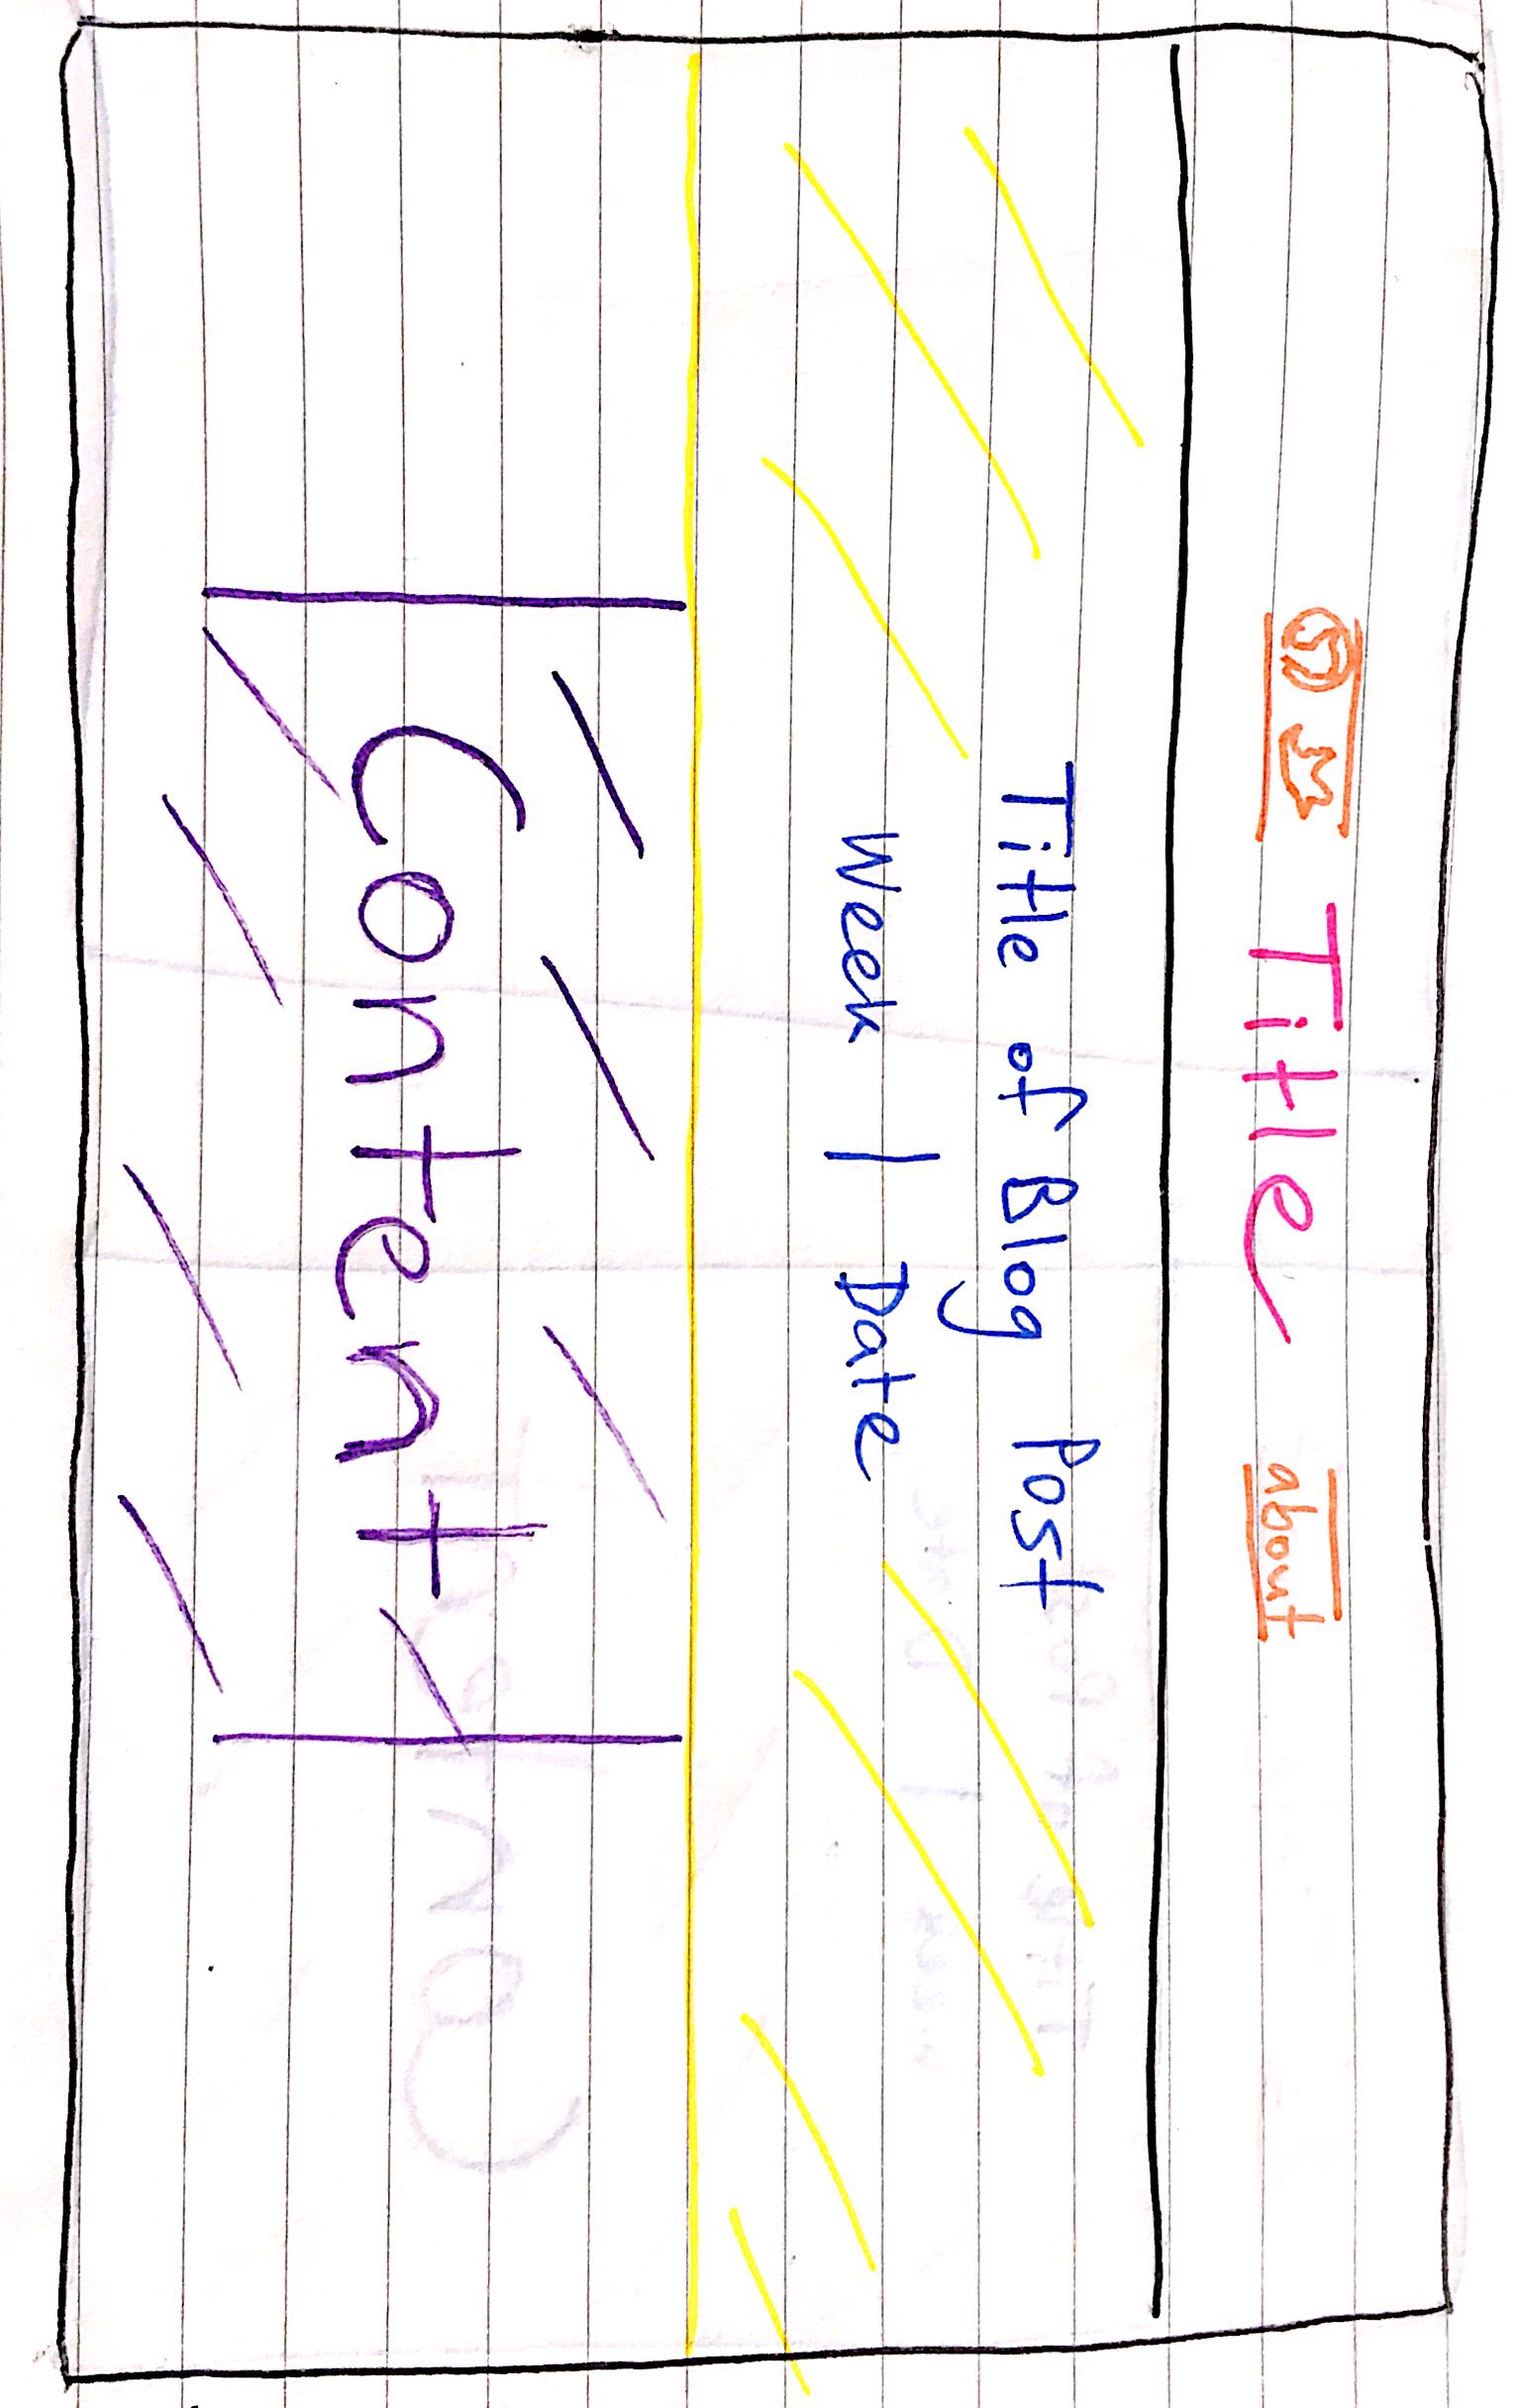 Title about
Title of Blog Post
Week | Date
Content